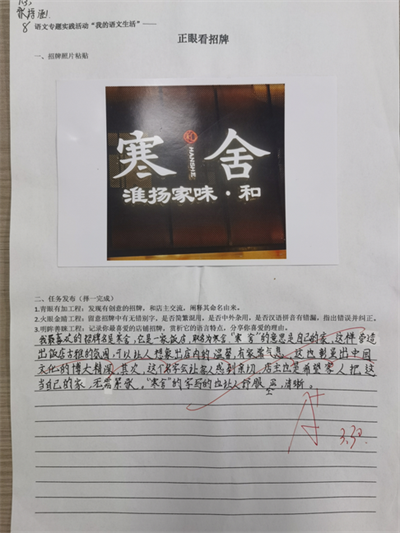 8 语文专题实践活动“我的语文生活”——
正眼看招牌
一、招牌照片粘贴
寒舍
HANSHE
淮扬家味·和
二、任务发布（择一完成）
1.青眼有加工程：发现有创意的招牌，和店主交流，阐释其命名由来。
2.火眼金睛工程：留意招牌中有无错别字，是否简繁混用，是否中外杂用，是否汉语拼音有错漏，指出错误并纠正。
3.明眸善睐工程：记录你最喜爱的店铺招牌，赏析它的语言特点，分享你喜爱的理由。
我最喜欢的招牌名是寒舍，它是一家饭店，取名为寒舍“寒舍”的意思是自己的家，这样营造
出饭店古雅的氛围，可以让人想象出店内的温馨，有家常气息，这也彰显出中国
文化的博大精深。其次，这个名字会让客人感到亲切，店主也是希望客人把这
当自己的家，无需客气。“寒舍”的字写的也让人舒服，清晰。
3.30.